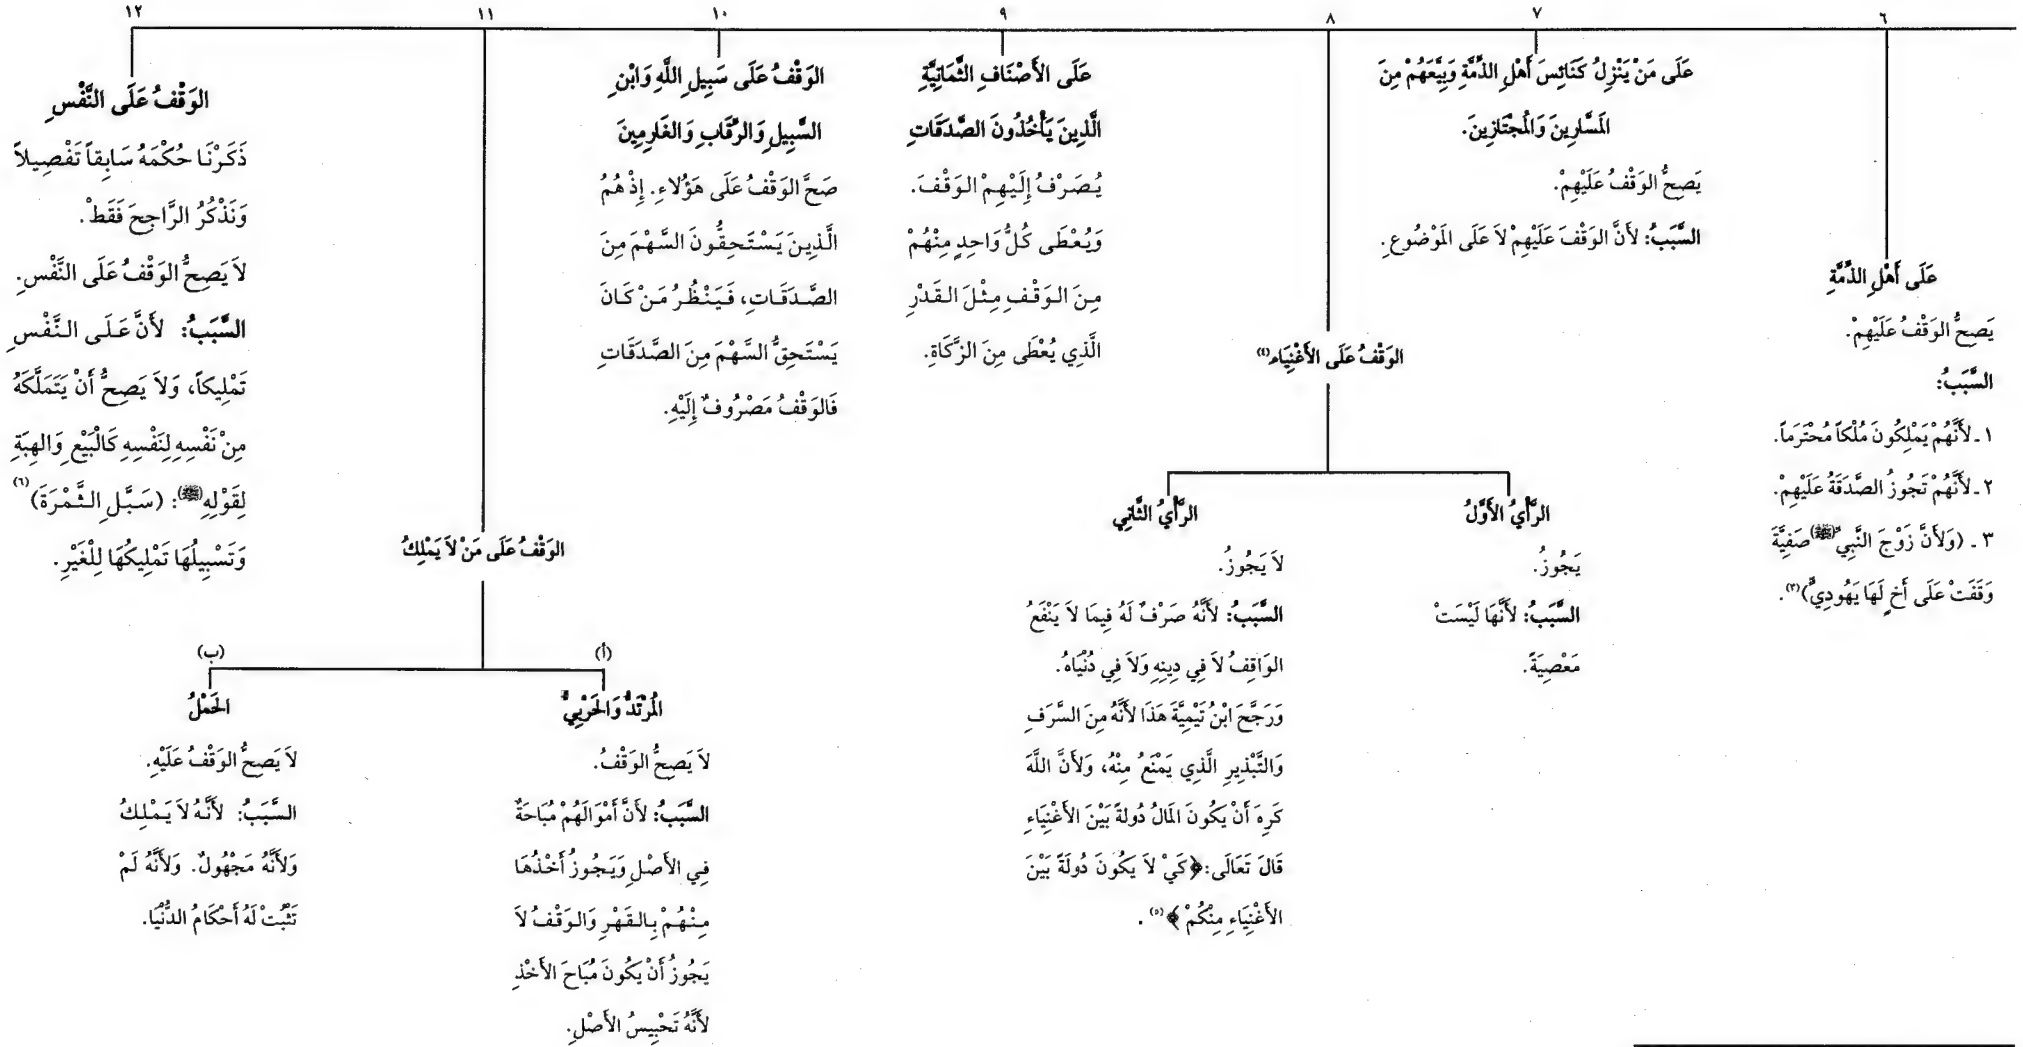 ٦
عَلَى أَهْلِ الذِّمَّةِ
يَصِحُّ الوَقْفُ عَلَيْهِمْ.
السَّبَبُ:
١ ـ لأَنَّهُمْ يَمْلِكُونَ مُلْكاً مُحْتَرَماً.
٢ ـ لأَنَّهُمْ تَجُوزُ الصَّدَقَةُ عَلَيْهِمْ.
٣ ـ (وَلأَنَّ زَوْجَ النَّبِيِّ (ﷺ) صَفِيَّةَ
وَقَفَتْ عَلَى أَخٍ لَهَا يَهُودِيٍّ)(٣).
٧
عَلَى مَنْ يَنْزِلُ كَنَائِسَ أَهْلِ الذِّمَّةِ وَبِيَّعَهُمْ مِنَ
المَسَّارِينَ وَالمُجْتَازِينَ.
يَصِحُّ الوَقْفُ عَلَيْهِمْ.
السَّبَبُ: لأَنَّ الوَقْفَ عَلَيْهِمْ لاَ عَلَى المَوْضُوعِ.
٨
الوَقْفُ عَلَى الأَغْنِيَاءِ(٤)
الرَّأْيُ الأَوَّلُ
يَجُوزُ.
السَّبَبُ: لأَنَّهَا لَيْسَتْ
مَعْصِيَةً.
الرَّأْيُ الثَّانِي
لاَ يَجُوزُ.
السَّبَبُ: لأَنَّهُ صَرْفٌ لَهُ فِيمَا لاَ يَنْفَعُ
الوَاقِفُ لاَ فِي دِينِهِ وَلاَ فِي دُنْيَاهُ.
وَرَجَّحَ ابْنُ تَيْمِيَّةَ هَذَا لأَنَّهُ مِنَ السَّرَفِ
وَالتَّبْذِيرِ الَّذِي يَمْنَعُ مِنْهُ، وَلأَنَّ اللَّهَ
كَرِهَ أَنْ يَكُونَ المَالُ دُولةً بَيْنَ الأَغْنِيَاءِ
قَالَ تَعَالَى: ﴿كَيْ لاَ يَكُونَ دُولَةً بَيْنَ
الأَغْنِيَاءِ مِنْكُمْ﴾(٥).
٩
عَلَى الأَصْنَافِ الثَّمَانِيَّةِ
الَّذِينَ يَأْخُذُونَ الصَّدَقَاتِ
يُصَرْفُ إِلَيْهِمْ الوَقْفَ.
وَيُعْطَى كُلُّ وَاحِدٍ مِنْهُمْ
مِنَ الوَقْفِ مِثْلَ القَدْرِ
الَّذِي يُعْطَى مِنَ الزَّكَاةِ.
١٠
الوَقْفُ عَلَى سَبِيلِ اللَّهِ وَابْنِ
السَّبِيلِ وَالرِّقَابِ وَالغَارِمِينَ
صَحَّ الوَقْفُ عَلَى هَؤُلاءِ. إِذْ هُمُ
الَّذِينَ يَسْتَحِقُّونَ السَّهْمَ مِنَ
الصَّدَقَاتِ، فَيَنْظُرُ مَنْ كَانَ
يَسْتَحِقُّ السَّهْمَ مِنَ الصَّدَقَاتِ
فَالوَقْفُ مَصْرُوفٌ إِلَيْهِ.
١١
الوَقْفُ عَلَى مَنْ لاَ يَمْلِكُ
(أ)
المُرْتَدُّ وَالحَرْبِيُّ
لاَ يَصِحُّ الوَقْفُ.
السَّبَبُ: لأَنَّ أَمْوَالَهُمْ مُبَاحَةٌ
فِي الأَصْلِ وَيَجُوزُ أَخْذُهَا
مِنْهُمْ بِالقَهْرِ وَالوَقْفُ لاَ
يَجُوزُ أَنْ يَكُونَ مُبَاحَ الأَخْذِ
لأَنَّهُ تَحْبِيسُ الأَصْلِ.
(ب)
الحَمْلُ
لاَ يَصِحُّ الوَقْفُ عَلَيْهِ.
السَّبَبُ: لأَنَّهُ لاَ يَمْلِكُ
وَلأَنَّهُ مَجْهُولٌ. وَلأَنَّهُ لَمْ
تَثْبُتْ لَهُ أَحْكَامُ الدُّنْيَا.
١٢
الوَقْفُ عَلَى النَّفْسِ
ذَكَرْنَا حُكْمَهُ سَابِقاً تَفْصِيلاً
وَنَذْكُرُ الرَّاجِحَ فَقَطْ.
لاَ يَصِحُّ الوَقْفُ عَلَى النَّفْسِ.
السَّبَبُ: لأَنَّ عَلَى النَّفْسِ
تَمْلِيكاً، وَلاَ يَصِحُّ أَنْ يَتَمَلَّكَهُ
مِنْ نَفْسِهِ لِنَفْسِهِ كَالْبَيْعِ وَالهِبَةِ
لِقَوْلِهِ (ﷺ): (سَبِّلِ الثَّمْرَةَ)(٦)
وَتَسْبِيلُهَا تَمْلِيكُهَا لِلْغَيْرِ.